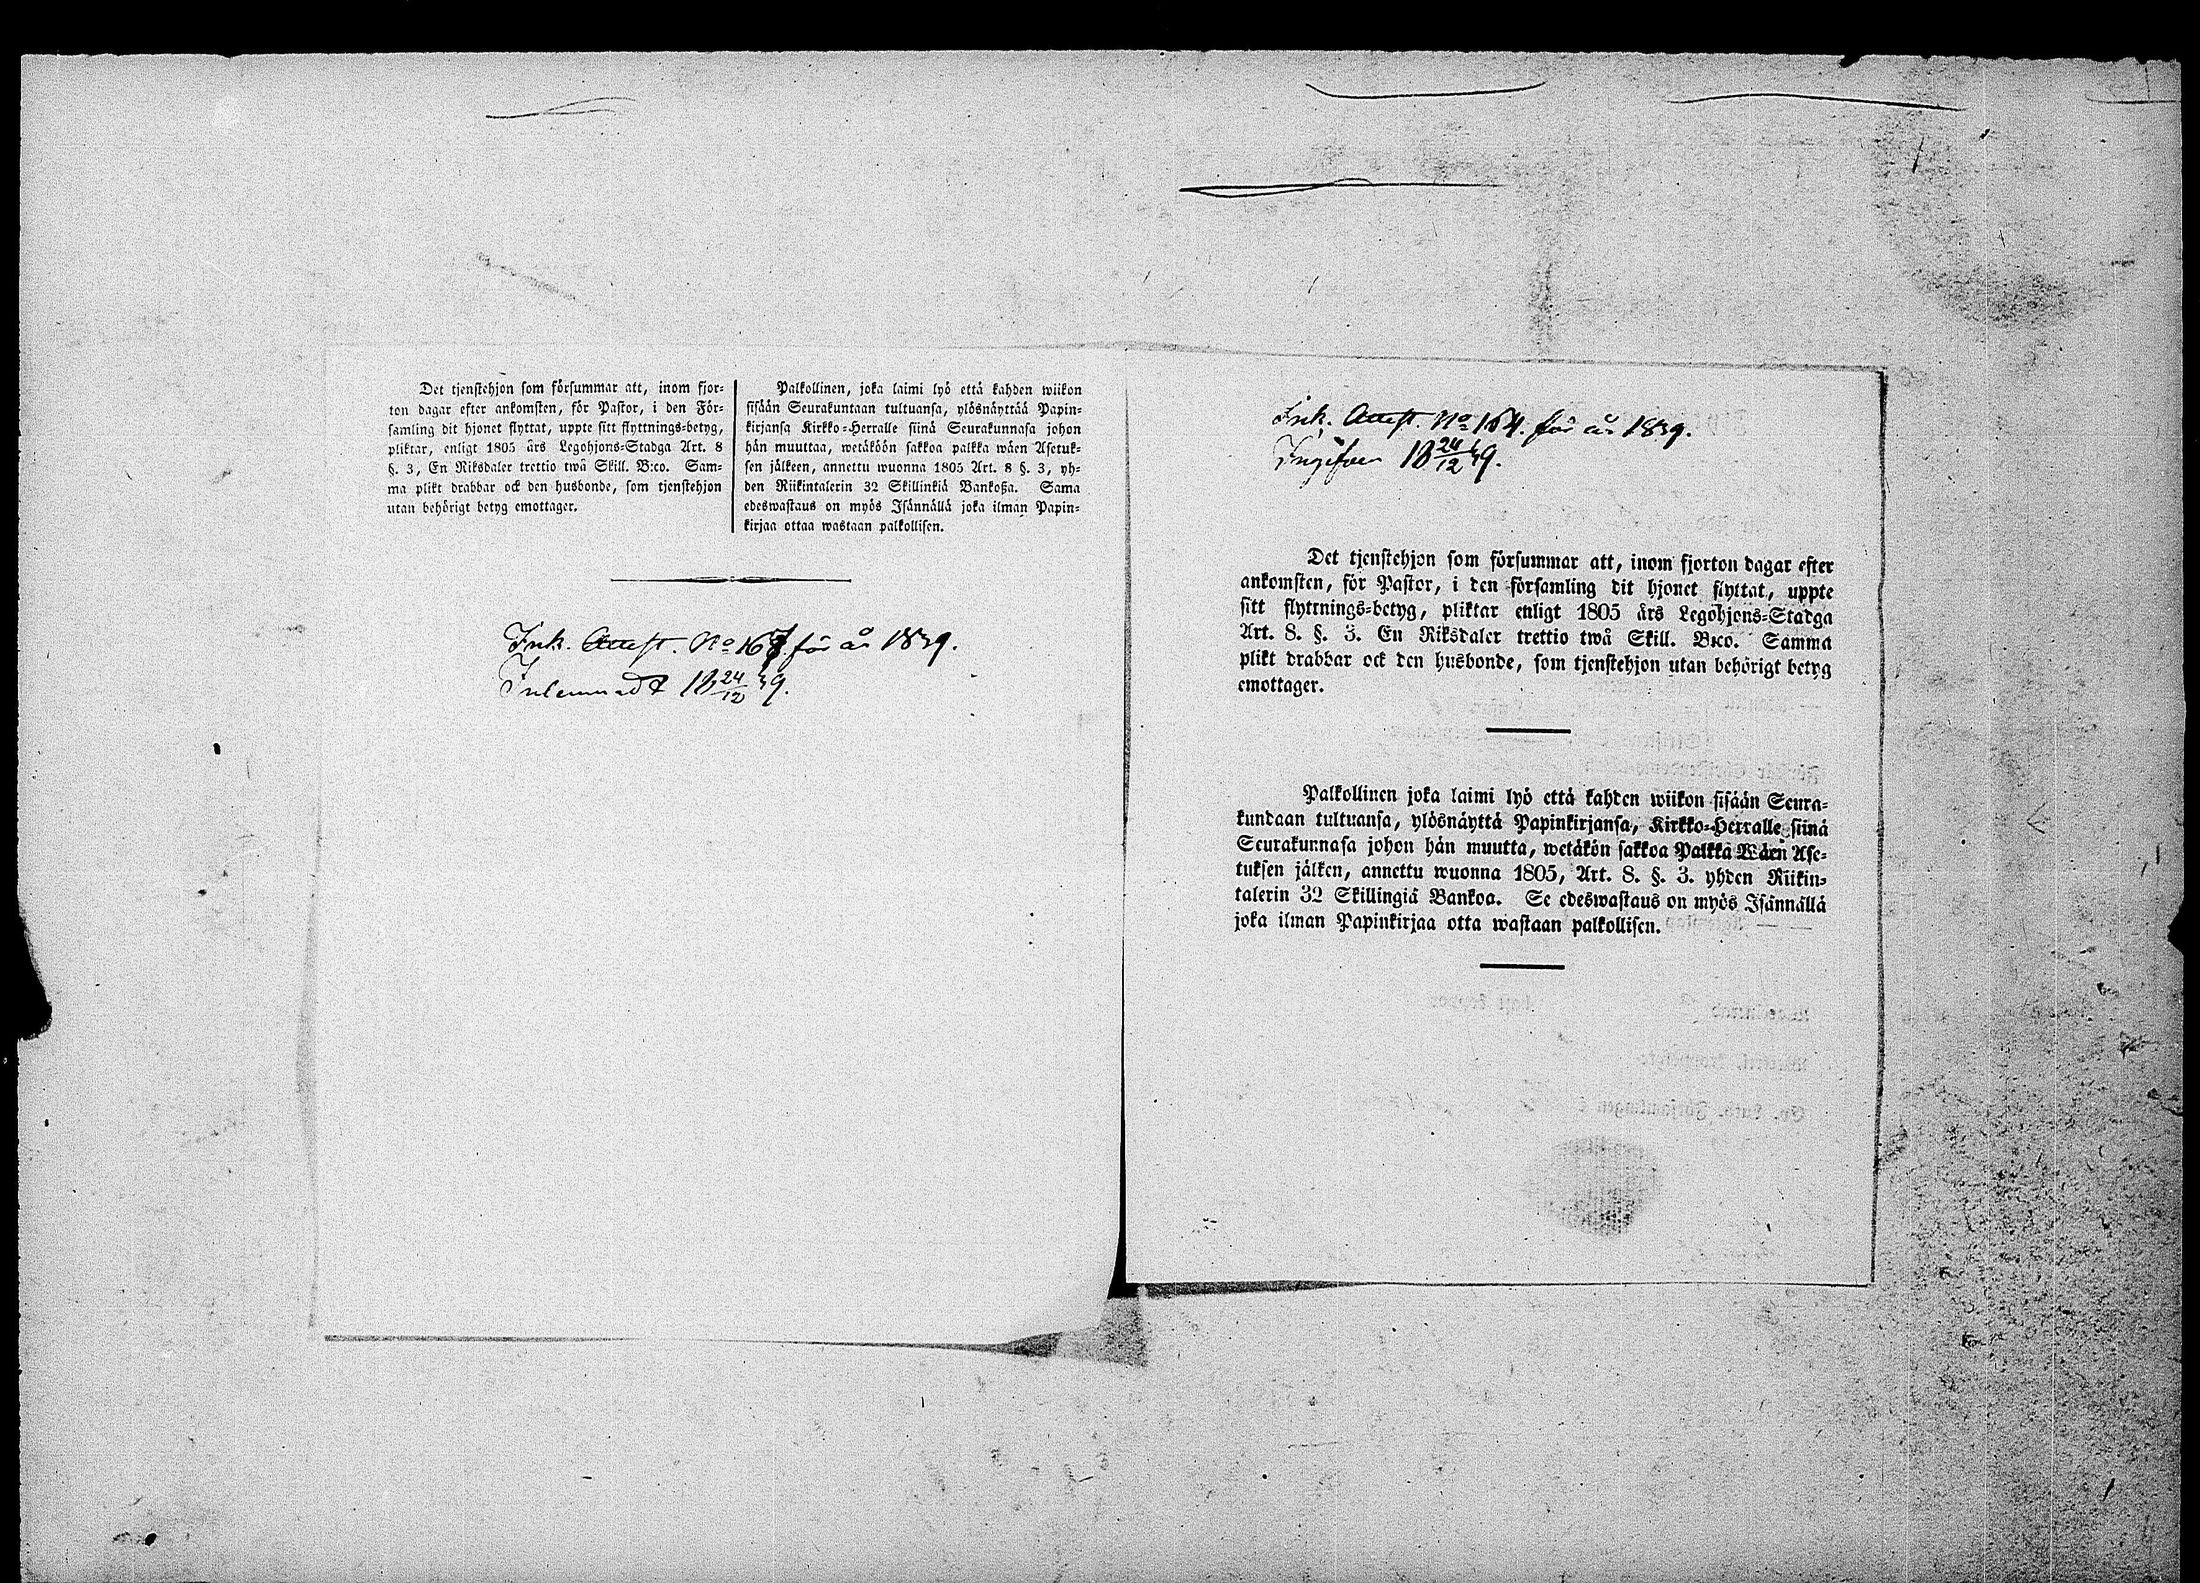 Det tjenstehjon som försummar att, inom fjor-
ton dagar efter ankomsten, för Pastor, i den För-
samling dit hjonet flyttat, uppte sitt flyttnings-betyg,
pliktar, enligt 1805 års Legohjons-Stadga Art. 8
§. 3, En Riksdaler trettio twå Skill. B:co. Sam-
ma plikt drabbar ock den husbonde, som tjenstehjon
utan behörigt betyg emottager.
Palkollinen, joka laimi lyö että kahden wiikon
sisään Seurakuntaan tultuansa, ylösnäyttää Papin-
kirjansa Kirkko-Herralle siinä Seurakunnasa johon
hän muuttaa, wetäköön sakkoa palkka wäen Asetuk-
sen jälkeen, annettu wuonna 1805 Art. 8 §. 3, yh-
den Riikintalerin 32 Skillinkiä Bankoßa. Sama
edeswastaus on myös Isännällä joka ilman Papin-
kirjaa ottaa wastaan palkollisen.
Ink. Attest. No 167 för år 1839.
Inlemnadt 18 24/12 39.
Ink. Attest. No 164. för år 1839.
Ingifven 18 24/12 39.
Det tjenstehjon som försummar att, inom fjorton dagar efter
ankomsten, för Pastor, i den församling dit hjonet flyttat, uppte
sitt flyttnings-betyg, pliktar enligt 1805 års Legohjons-Stadga
Art. 8. §. 3. En Riksdaler trettio twå Skill. B:co. Samma
plikt drabbar ock den husbonde, som tjenstehjon utan behörigt betyg
emottager.
Palkollinen joka laimi lyö että kahden wiikon sisään Seura-
kundaan tultuansa, ylösnäyttä Papinkirjansa, Kirkko-Herralle siinä
Seurakunnasa johon hän muutta, wetäkön sakkoa Palkka Wäen Ase-
tuksen jälken, annettu wuonna 1805, Art. 8. §. 3. yhden Riikin-
talerin 32 Skillingiä Bankoa. Se edeswastaus on myös Isännällä
joka ilman Papinkirjaa otta wastaan palkollisen.